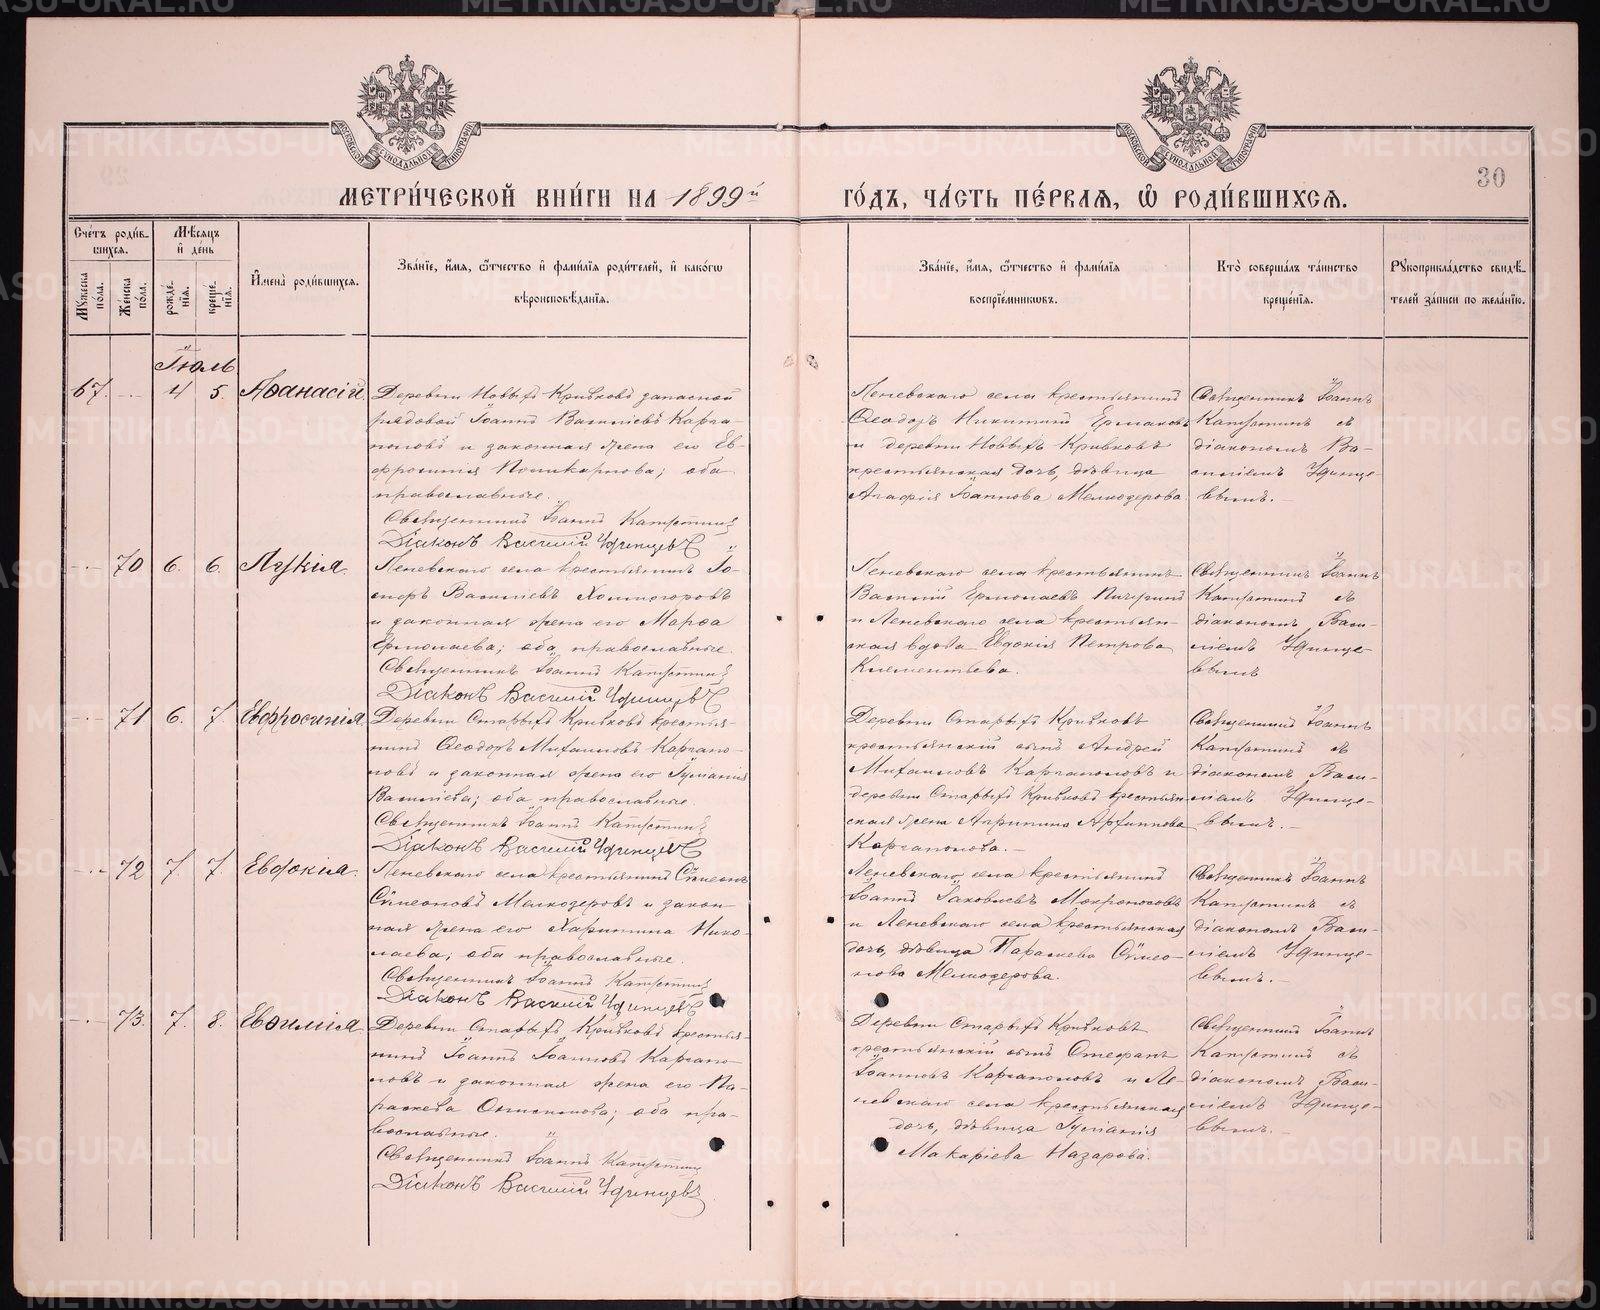 МЕТРИ́ЧЕСКОЙ КНИ́ГИ НА 1899й
ГО́ДЪ, ЧА́СТЬ ПЕ́РВАЯ, Ѽ РОДИ́ВШИХСЯ.
30
Сче́тъ роди́в-
шихся.
Мѣсяцъ
и де́нь
Му́жеска
по́ла.
Же́нска
по́ла.
рожде-
нїя.
креще-
нїя.
Имена̀ роди́вшихся.
Зва́нїе, и́мя, ѻ҆́тчество и фами́лїя роди́телей, и како́гѡ
вѣроисповѣ́данїя.
Зва́нїе, и́мя, ѻ҆́тчество и фами́лїя
воспрїе́мниковъ.
Кто̀ соверша́лъ та́инство
креще́нїя.
Рукоприкла́дство свидѣ́-
телей за́писи по жела́нїю.
Іюль
67. 4 5. Аѳанасій
Деревни Новыхъ Кривковъ запасной
рядовой Іоаннъ Васильевъ Карга-
половъ и законная жена его Ев-
фросинія Поликарпова; оба
православные.
Священникъ Іоаннъ Капустинъ
Діаконъ Василій Удинцевъ
Леневскаго села крестьянинъ
Ѳеодоръ Никитинъ Ермаковъ
и деревни Новыхъ Кривковъ
крестьянская дочь, дѣвица
Агафія Іоаннова Мелкозерова
Священникъ Іоаннъ
Капустинъ съ
діакономъ Ва-
силіемъ Удинце-
вымъ.
70 6. 6. Лукія.
Леневскаго села крестьянинъ Іо-
сифъ Васильевъ Холмогоровъ
и законная жена его Марѳа
Ермолаева; оба православные.
Священникъ Іоаннъ Капустинъ
Діаконъ Василій Удинцевъ
Леневскаго села крестьянинъ
Василій Ермолаевъ Пичугинъ
и Леневскаго села крестьян-
ская вдова Евдокія Петрова
Климентьева.
Священникъ Іоаннъ
Капустинъ съ
діакономъ Васи-
ліемъ Удинце-
вымъ
71 6. 7. Евфросинія
Деревни Старыхъ Кривковъ крестья-
нинъ Ѳеодоръ Михаиловъ Каргапо-
ловъ и законная жена его Іуліанія
Васильева; оба православные.
Священникъ Іоаннъ Капустинъ
Діаконъ Василій Удинцевъ
Деревни Старыхъ Кривковъ
крестьянскій сынъ Андрей
Михаиловъ Каргаполовъ и
деревни Старыхъ Кривковъ крестьян-
ская жена Агрипина
Каргаполова.
Священникъ Іоаннъ
Капустинъ съ
діакономъ Васи-
ліемъ Удинце-
вымъ.
72 7. 7. Евдокія.
Леневскаго села крестьянинъ Сѵмеонъ
Сѵмеоновъ Мелкозеровъ и закон-
ная жена его Харитина Нико-
лаева; оба православные.
Священникъ Іоаннъ Капустинъ
Діаконъ Василій Удинцевъ
Леневскаго села крестьянинъ
Іоаннъ Іаковлевъ Мокроносовъ
и Леневскаго села крестьянская
дочь, дѣвица Параскева Сѵмео-
нова Мелкозерова.
Священникъ Іоаннъ
Капустинъ съ
діакономъ Васи-
ліемъ Удинце-
вымъ.
73. 7. 8. Евѳимія
Деревни Старыхъ Кривковъ крестья-
нинъ Іоаннъ Іоанновъ Каргапо-
ловъ и законная жена его Па-
раскева; оба пра-
вославные.
Священникъ Іоаннъ Капустинъ
Діаконъ Василій Удинцевъ
Деревни Старыхъ Кривковъ
крестьянскій сынъ Стефанъ
Іоанновъ Каргаполовъ и Ле-
невскаго села крестьянская
дочь, дѣвица Іуліанія
Макаріева Назарова.
Священникъ Іоаннъ
Капустинъ съ
діакономъ Васи-
ліемъ Удинце-
вымъ.
METRIKI.GASO-URAL.RU